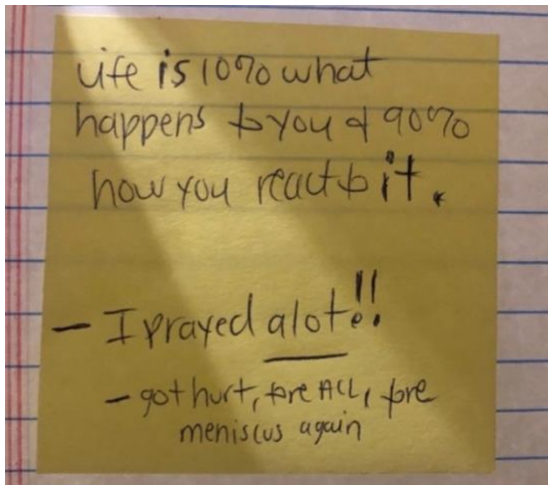 Life is 10% what
happens to you & 90%
how you react to it.
- I prayed alot!!
- got hurt, tore ACL, tore
meniscus again